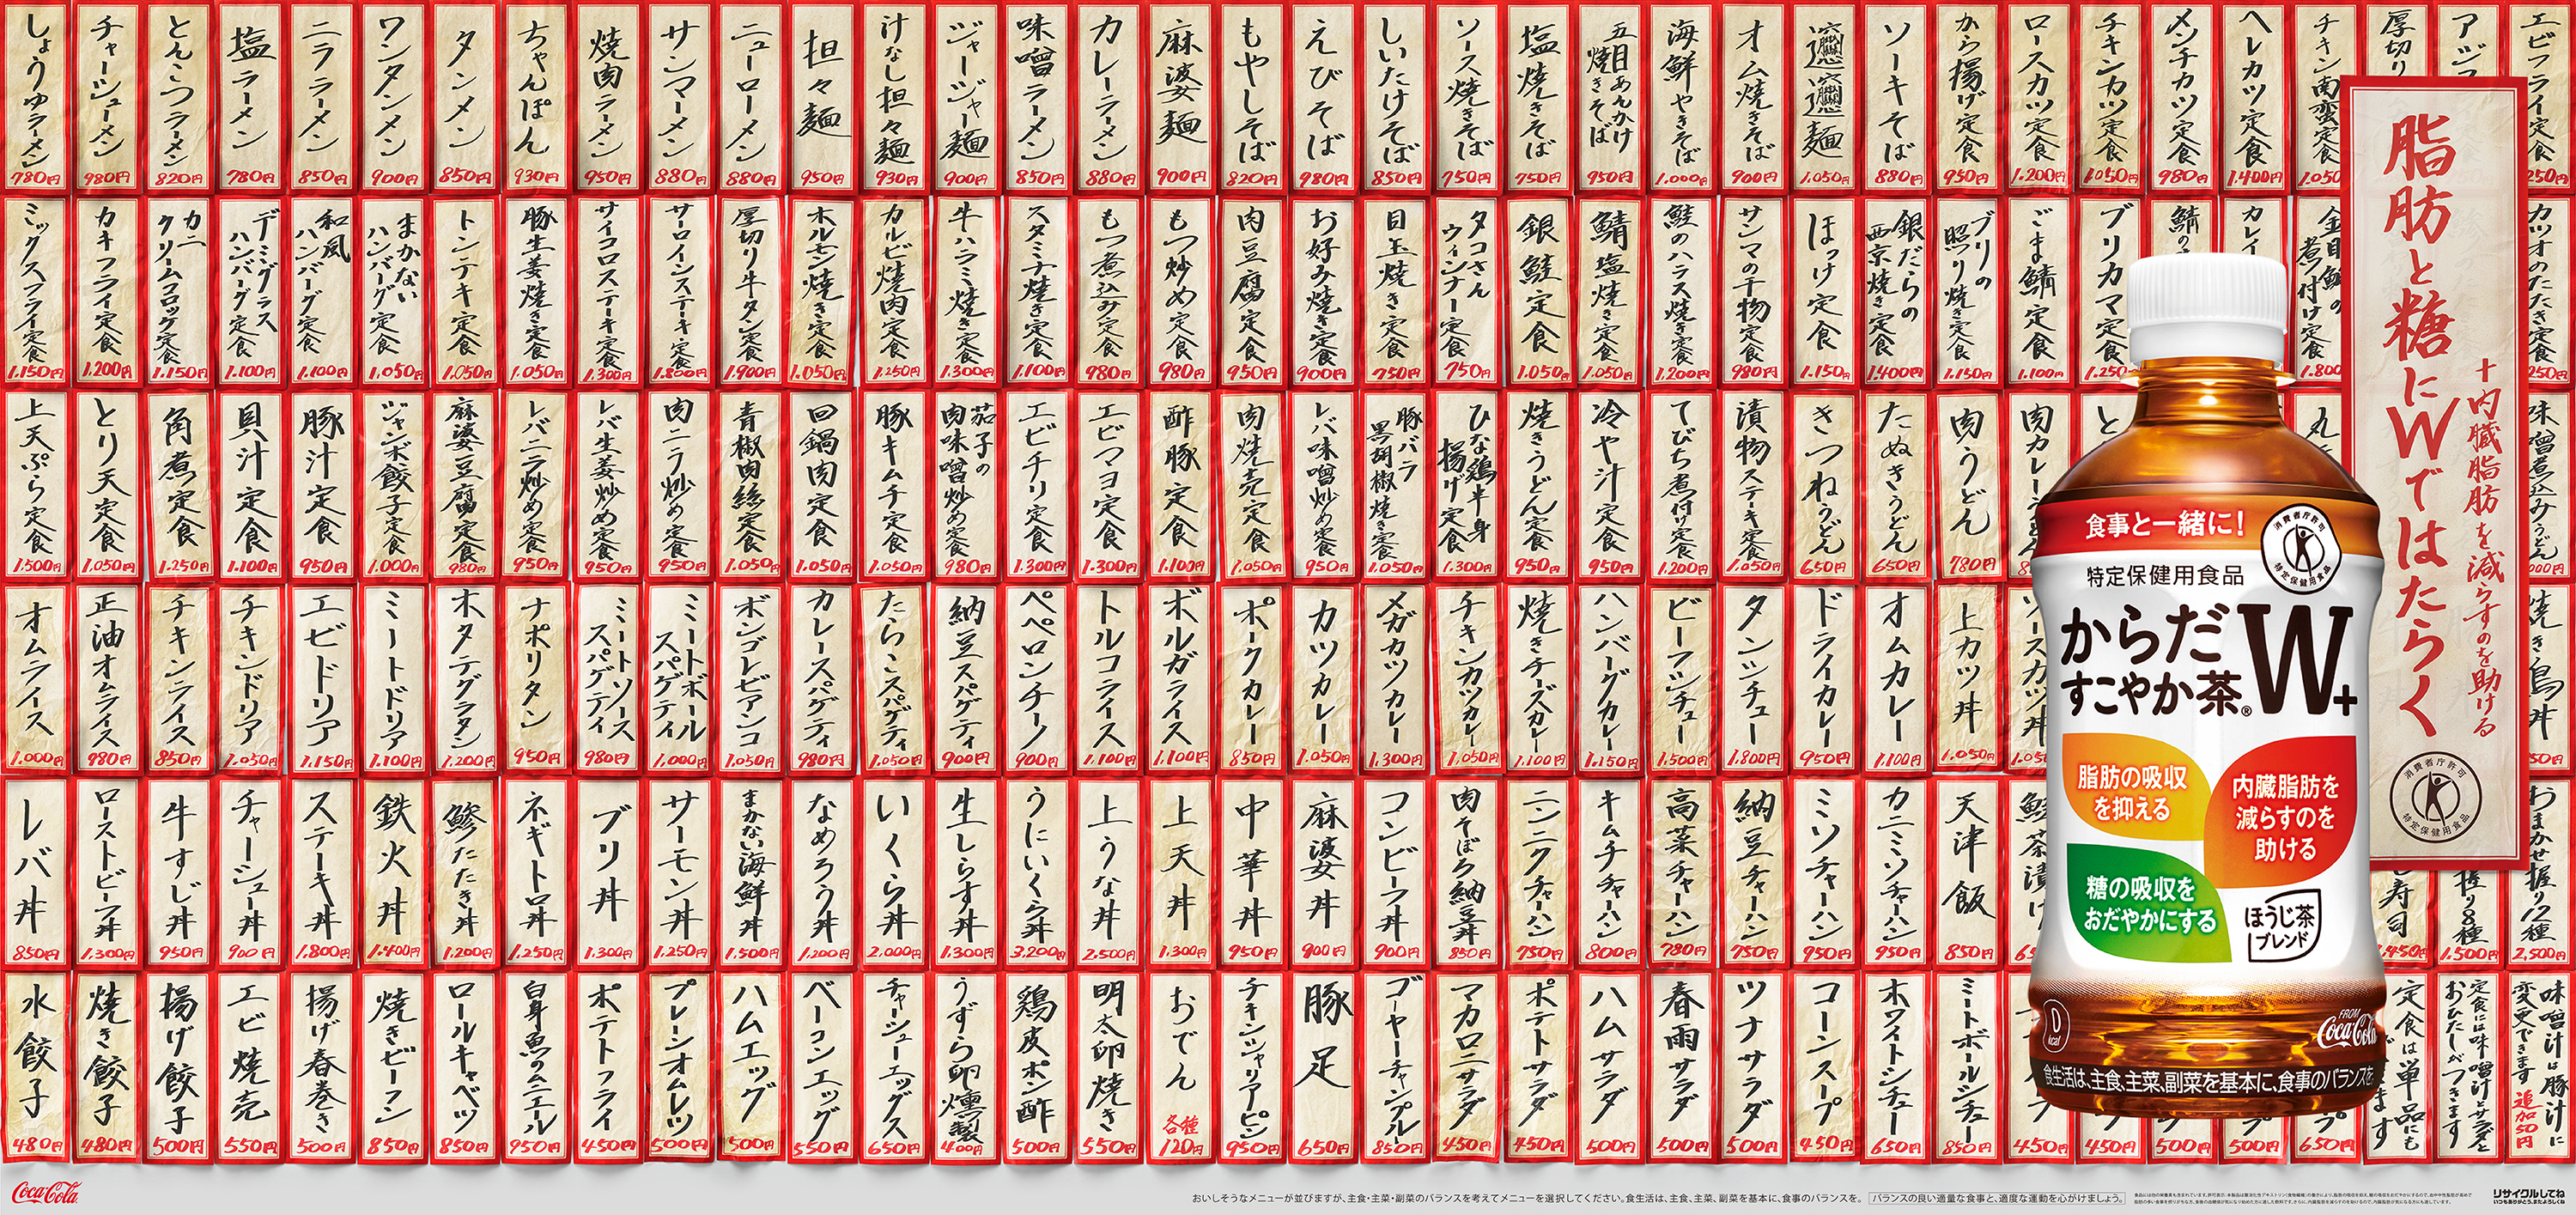 しょうゆラーメン 780円
チャーシューメン 980円
とんこつラーメン 820円
塩ラーメン 780円
ニララーメン 850円
ワンタンメン 900円
タンメン 850円
ちゃんぽん 930円
焼肉ラーメン 950円
サンマーメン 880円
ニューローメン 880円
担々麺 950円
汁なし担々麺 930円
ジャージャー麺 900円
味噌ラーメン 850円
カレーラーメン 880円
麻婆麺 900円
もやしそば 820円
えびそば 980円
しいたけそば 850円
ソース焼きそば 750円
塩焼きそば 750円
五目あんかけ焼きそば 950円
海鮮やきそば 1.000円
オム焼きそば 900円
麺 1.050円
ソーキそば 880円
から揚げ定食 950円
ロースカツ定食 1.200円
チキンカツ定食 1.050円
メンチカツ定食 980円
ヘレカツ定食 1.400円
チキン南蛮定食 1.050
厚切り
アジ
エビフライ定食 250円
ミックスフライ定食 1.150円
カキフライ定食 1.200円
カニクリームコロッケ定食 1.150円
デミグラスハンバーグ定食 1.100円
和風ハンバーグ定食 1.100円
まかないハンバーグ定食 1.050円
トンテキ定食 1.050円
豚生姜焼き定食 1.050円
サイコロステーキ定食 1.300円
サーロインステーキ定食 1.800円
厚切り牛タン定食 1.900円
ホルモン焼き定食 1.050円
カルビ焼肉定食 1.250円
牛ハラミ焼き定食 1.300円
スタミナ焼き定食 1.100円
もつ煮込み定食 980円
もつ炒め定食 980円
肉豆腐定食 950円
お好み焼き定食 900円
目玉焼き定食 750円
タコさんウィンナー定食 750円
銀鮭定食 1.050円
鯖塩焼き定食 1.050円
鮭のハラス焼き定食 1.200円
サンマの干物定食 980円
ほっけ定食 1.150円
銀だらの西京焼き定食 1.400円
ブリの照り焼き定食 1.150円
ごま鯖定食 1.100円
ブリカマ定食 1.250
鯖の
カレイ
金目鯛の煮付け定食 1.800
カツオのたたき定食 250円
上天ぷら定食 1.500円
とり天定食 1.050円
角煮定食 1.250円
貝汁定食 1.100円
豚汁定食 950円
ジャンボ餃子定食 1.000円
麻婆豆腐定食 980円
レバニラ炒め定食 950円
レバ生姜炒め定食 950円
肉ニラ炒め定食 950円
青椒肉絲定食 1.050円
回鍋肉定食 1.050円
豚キムチ定食 1.050円
茄子の肉味噌炒め定食 980円
エビチリ定食 1.300円
エビマヨ定食 1.300円
酢豚定食 1.100円
肉焼売定食 1.050円
レバ味噌炒め定食 950円
豚バラ黒胡椒焼き定食 1.050円
ひな鶏半身揚げ定食 1.300円
焼きうどん定食 950円
冷や汁定食 950円
てびち煮付け定食 1.200円
漬物ステーキ定食 1.050円
きつねうどん 650円
たぬきうどん 650円
肉うどん 780円
肉カレーうどん
と
丸
味噌煮込みうどん 000円
オムライス 1.000円
正油オムライス 980円
チキンライス 850円
チキンドリア 1.050円
エビドリア 1.150円
ミートドリア 1.100円
ホタテグラタン 1.200円
ナポリタン 950円
ミートソーススパゲティ 980円
ミートボールスパゲティ 1.000円
ボンゴレビアンコ 1.050円
カレースパゲティ 980円
たらこスパゲティ 1.050円
納豆スパゲティ 900円
ペペロンチーノ 900円
トルコライス 1.100円
ボルガライス 1.100円
ポークカレー 850円
カツカレー 1.050円
メガカツカレー 1.300円
チキンカツカレー 1.050円
焼きチーズカレー 1.100円
ハンバーグカレー 1.150円
ビーフシチュー 1.500円
タンシチュー 1.800円
ドライカレー 950円
オムカレー 1.100円
上カツ丼 1.050円
ソースカツ丼 1.050
焼き鳥丼 50円
レバ丼 850円
ローストビーフ丼 1.300円
牛すじ丼 950円
チャーシュー丼 900円
ステーキ丼 1.800円
鉄火丼 1.400円
鯵たたき丼 1.200円
ネギトロ丼 1.250円
ブリ丼 1.300円
サーモン丼 1.250円
まかない海鮮丼 1.500円
なめろう丼 1.200円
いくら丼 2.000円
生しらす丼 1.300円
うにいくら丼 3.200円
上うな丼 2.500円
上天丼 1.300円
中華丼 950円
麻婆丼 900円
コンビーフ丼 900円
肉そぼろ納豆丼 850円
ニンニクチャーハン 750円
キムチチャーハン 800円
高菜チャーハン 780円
納豆チャーハン 750円
ミソチャーハン 950円
カニミソチャーハン 950円
天津飯 850円
鮭茶漬け 65
寿司 1.450円
握り8種 1.500円
おまかせ握り12種 2.500円
水餃子 480円
焼き餃子 480円
揚げ餃子 500円
エビ焼売 550円
揚げ春巻き 500円
焼きビーフン 850円
ロールキャベツ 850円
白身魚のムニエル 950円
ポテトフライ 450円
プレーンオムレツ 500円
ハムエッグ 500円
ベーコンエッグ 550円
チャーシューエッグス 650円
うずら卵燻製 400円
鶏皮ポン酢 500円
明太卵焼き 550円
おでん 各種120円
チキンシャリアピン 950円
豚足 650円
ゴーヤーチャンプルー 850円
マカロニサラダ 450円
ポテトサラダ 450円
ハムサラダ 500円
春雨サラダ 500円
ツナサラダ 500円
コーンスープ 450円
ホワイトシチュー 650円
ミートボールシチュー 850円
450円
450円
500円
500円
650円
定食は単品にも
ます
定食には味噌汁とサラダと
おひたしがつきます
味噌汁は豚汁に
変更できます 追加50円
脂肪と糖にWではたらく
＋内臓脂肪を減らすのを助ける
消費者庁許可
特定保健用食品
食事と一緒に!
消費者庁許可
特定保健用食品
特定保健用食品
からだ
すこやか茶®W+
脂肪の吸収
を抑える
内臓脂肪を
減らすのを
助ける
糖の吸収を
おだやかにする
ほうじ茶
ブレンド
0
kcal
FROM
Coca-Cola
食生活は、主食、主菜、副菜を基本に、食事のバランスを
Coca-Cola
おいしそうなメニューが並びますが、主食・主菜・副菜のバランスを考えてメニューを選択してください。食生活は、主食、主菜、副菜を基本に、食事のバランスを。
バランスの良い適量な食事と、適度な運動を心がけましょう。
リサイクルしてね
いつもありがとう。またよろしくね